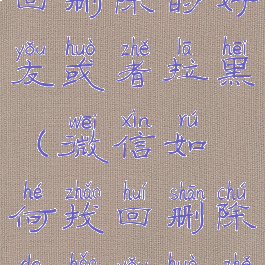 回删除的好
yǒu huò zhě lā hēi
友或者拉黑
wēi xìn rú
(微信如
hé zhǎo huí shān chú
何找回删除
de hǎo yǒu huò zhě